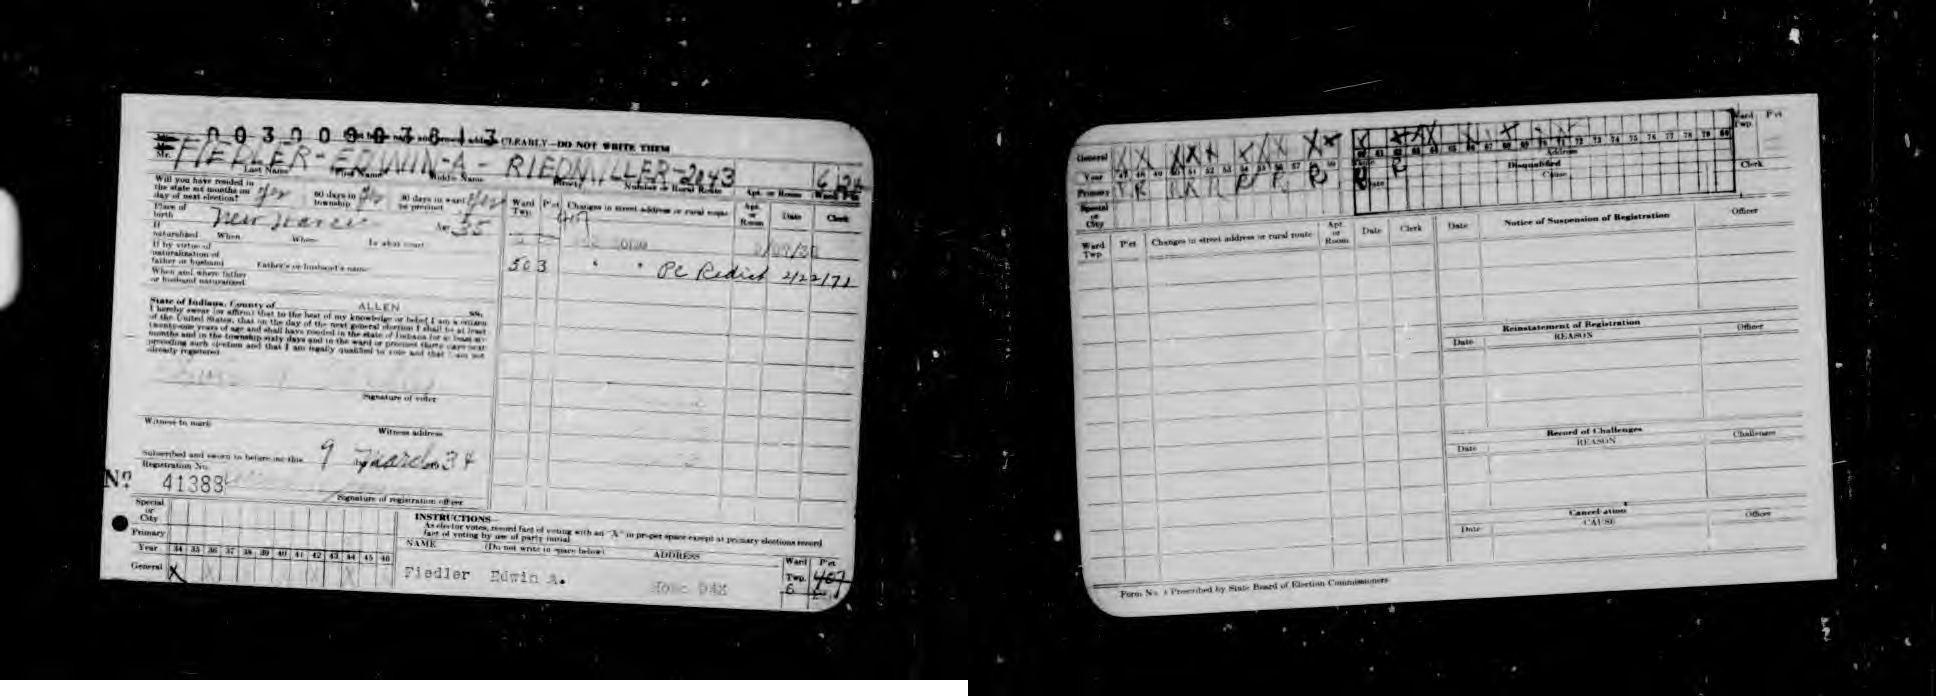 003009078 13 CLEARLY—DO NOT WRITE THEM
Mr. FIEDLER-EDWIN-A- RIEDMILLER-2043 6 24
Last Name First Name Middle Name Street Number or Rural Route Apt. or Room Ward Pct
Will you have resided in the state six months on day of next election? yes 60 days in township yes 30 days in ward or precinct yes
Place of birth New Haven Age 35
If naturalized When Where In what court
If by virtue of naturalization of father or husband Father's or husband's name
When and where father or husband naturalized
State of Indiana, County of ALLEN ss.
I hereby swear (or affirm) that to the best of my knowledge or belief I am a citizen
of the United States, that on the day of the next general election I shall be at least
twenty-one years of age and shall have resided in the state of Indiana for at least six
months and in the township sixty days and in the ward or precinct thirty days next
preceding such election and that I am legally qualified to vote and that I am not
already registered.
Signature of voter
Witness to mark
Witness address
Subscribed and sworn to before me this 9 day March 34
Registration No.
Nº 41388
Signature of registration officer
Ward Twp. P'ct Changes in street address or rural route Apt. or Room Date Clerk
407
503 " " PC Redist 2/22/71
Special or City
Primary
Year 34 35 36 37 38 39 40 41 42 43 44 45 46
General X
INSTRUCTIONS—
As elector votes, record fact of voting with an "X" in proper space except at primary elections record
fact of voting by use of party initial
NAME (Do not write in space below) ADDRESS Ward Twp. P'ct
Fiedler Edwin A. 6 407
General X X X X X X X X X X
Year 47 48 49 50 51 52 53 54 55 56 57 58 59 60 61 62 63 64 65 66 67 68 69 70 71 72 73 74 75 76 77 78 79 80
Primary R R R R R R R R
Special or City
Ward Twp. P'ct
Address
Disqualified
Cause
Date
Clerk
Ward Twp. P'ct Changes in street address or rural route Apt. or Room Date Clerk
Date Notice of Suspension of Registration Officer
Reinstatement of Registration
Date REASON Officer
Record of Challenges
Date REASON Challenges
Cancellation
Date CAUSE Officer
Prescribed by State Board of Election Commissioners